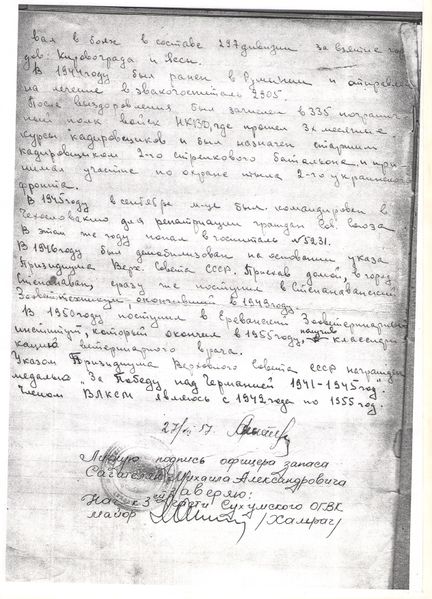 вал в боях в составе 297 дивизии за взятие го-
дов: Кировограда и Яссы.
В 1944 году был ранен в Румынии и отправлен
на лечение в эвакогоспиталь 2905.
После выздоровления был зачислен в 335 погранич-
ный полк войск НКВД, где прошел 3х месячные
курсы кадировщиков и был назначен старшим
кадировщиком 2-го стрелкового батальона, и при-
нимал участие по охране тыла 2-го украинского
фронта.
В 1945 году в сентябре м-це был командирован в
Чехословакию для репатриации граждан Сов. Союза
В этом же году попал в госпиталь №5231.
В 1946 году был демобилизован на основании указа
Призидиума Верх. Совета СССР. Приехав домой, в город
Степанаван, сразу же поступил в Степанаванский
Зооветтехникум, окончивший в 1949 году.
В 1950 году поступил в Ереванский Зооветеринарный
институт, который окончил в 1955 году, получив
кацию ветеринарного врача.
Указом Призидиума Верховного Совета СССР награжден
медалью „За Победу над Германией 1941-1945 год.
Членом ВЛКСМ являюсь с 1942 года по 1955 год.
27/ 57.
Личную подпись офицера запаса
Михаила Александровича
заверяю:
Нач. 3 части Сухумского ОГВК
майор /Хамраг/